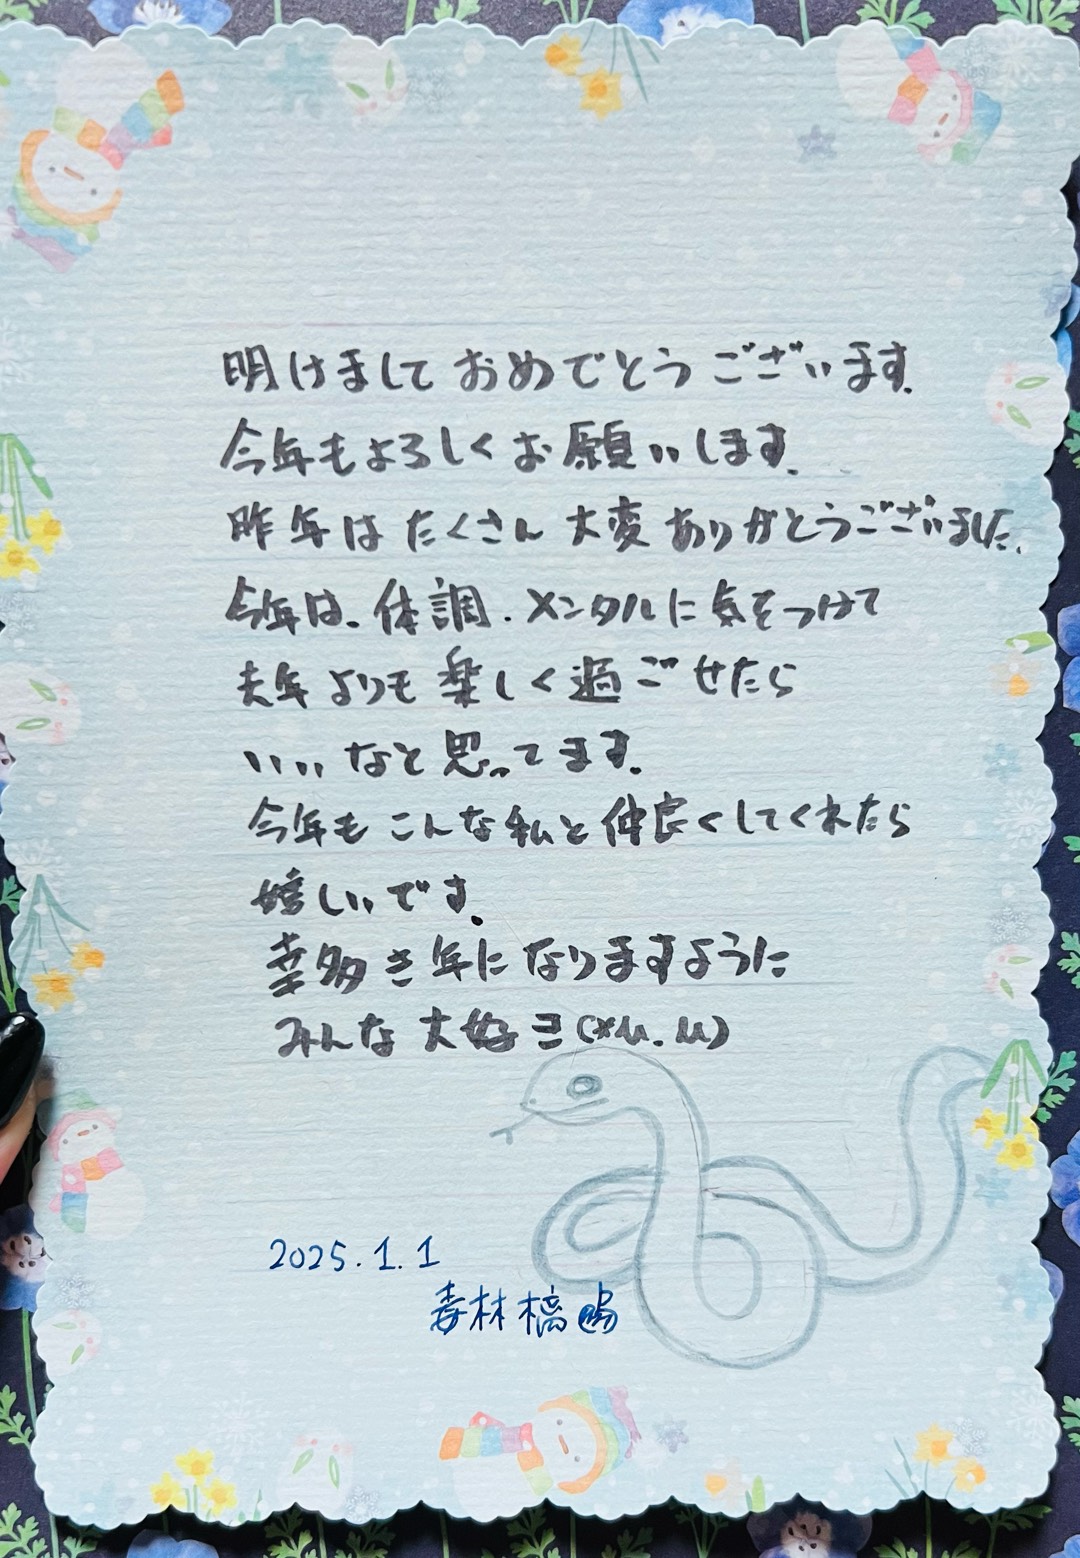 明けましておめでとうございます。
今年もよろしくお願いします。
昨年はたくさん大変ありがとうございました。
今年は、体調・メンタルに気をつけて
去年よりも楽しく過ごせたら
いいなと思ってます。
今年もこんな私と仲良くしてくれたら
嬉しいです。
幸多き年になりますように
みんな大好き(*μ_μ)
2025.1.1
林檎